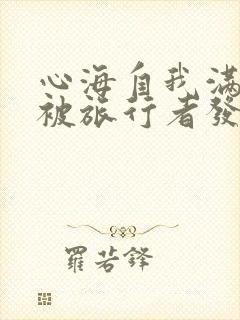 心海自我滿
被旅行者發
羅若鋒